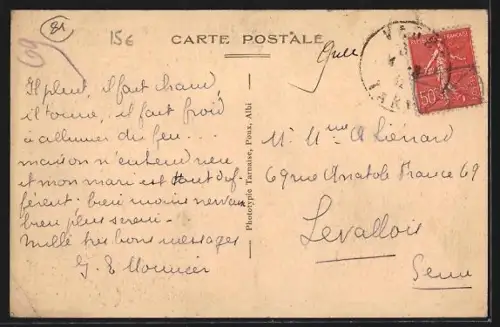 81
15€
69
CARTE POSTALE
Il pleut, il fait chaud,
il tonne, il fait froid
à allumer du feu...
maison n'entend rien
et mon mari est tout dif-
férent. bien moins nerveux
bien plus serein.
Mille très bons messages
G. E Mounier
Phototypie Tarnaise, Poux, Albi
POSTES FRANÇAISES
50c
TARN
M. Mme A Liénard
69 rue Anatole France 69
Levallois
Seine